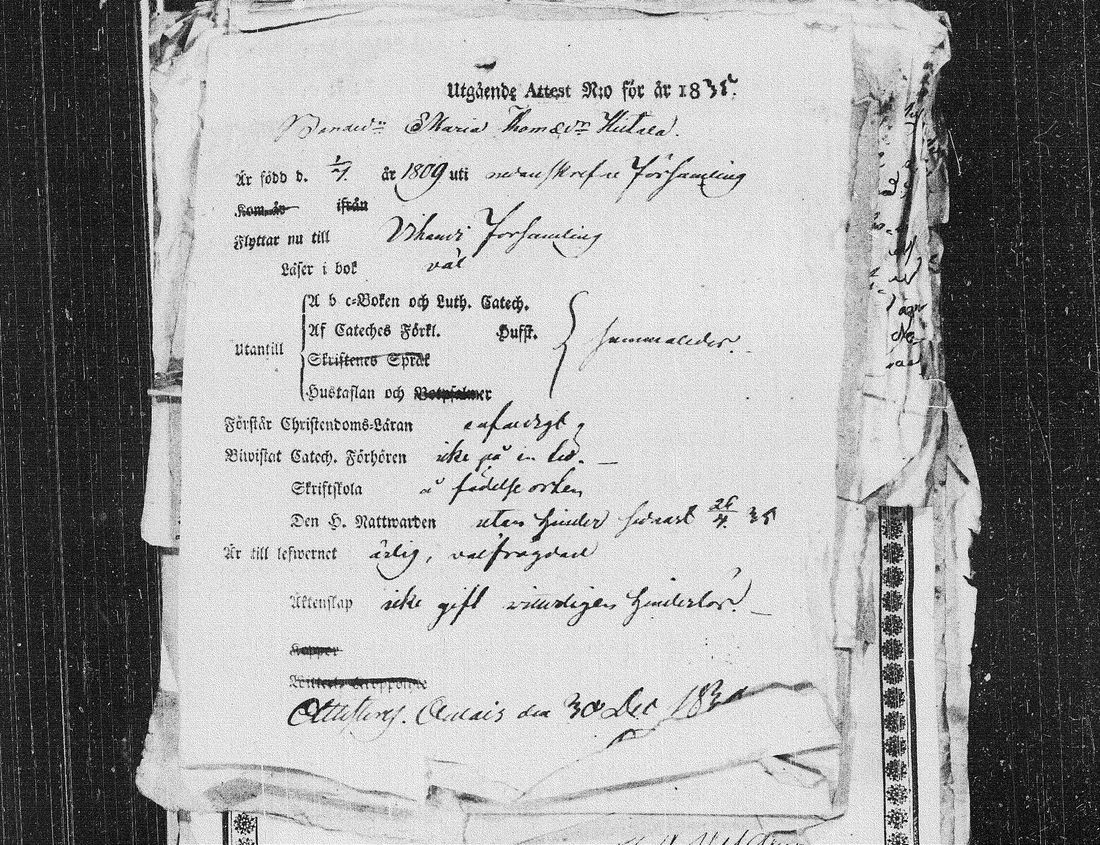 Utgående Attest N:o för år 1835.
Bonded:r Maria Thomæd:r Hiitala.
Är född d. 1/7. år 1809 uti nedanskrefne Församling
Kom år ifrån
Flyttar nu till Vihandi Forsamling
Läser i bok väl
A b c-Boken och Luth. Catech.
Af Cateches Förkl. Husft.
Utantill sammaledes.
Skriftenes Språk
Hustaflan och Botpsalmer
Förstår Christendoms-Läran enfaldigt
Biwistat Catech. Förhören icke på en tid.
Skriftskola å födelse orten
Den H. Nattwarden utan hinder sednast 26/4. 35
Är till lefwernet ärlig, välfrägdad
Äktenskap icke gift hinderlös.
Koppor
Attesteras. den 30 Dec 1835